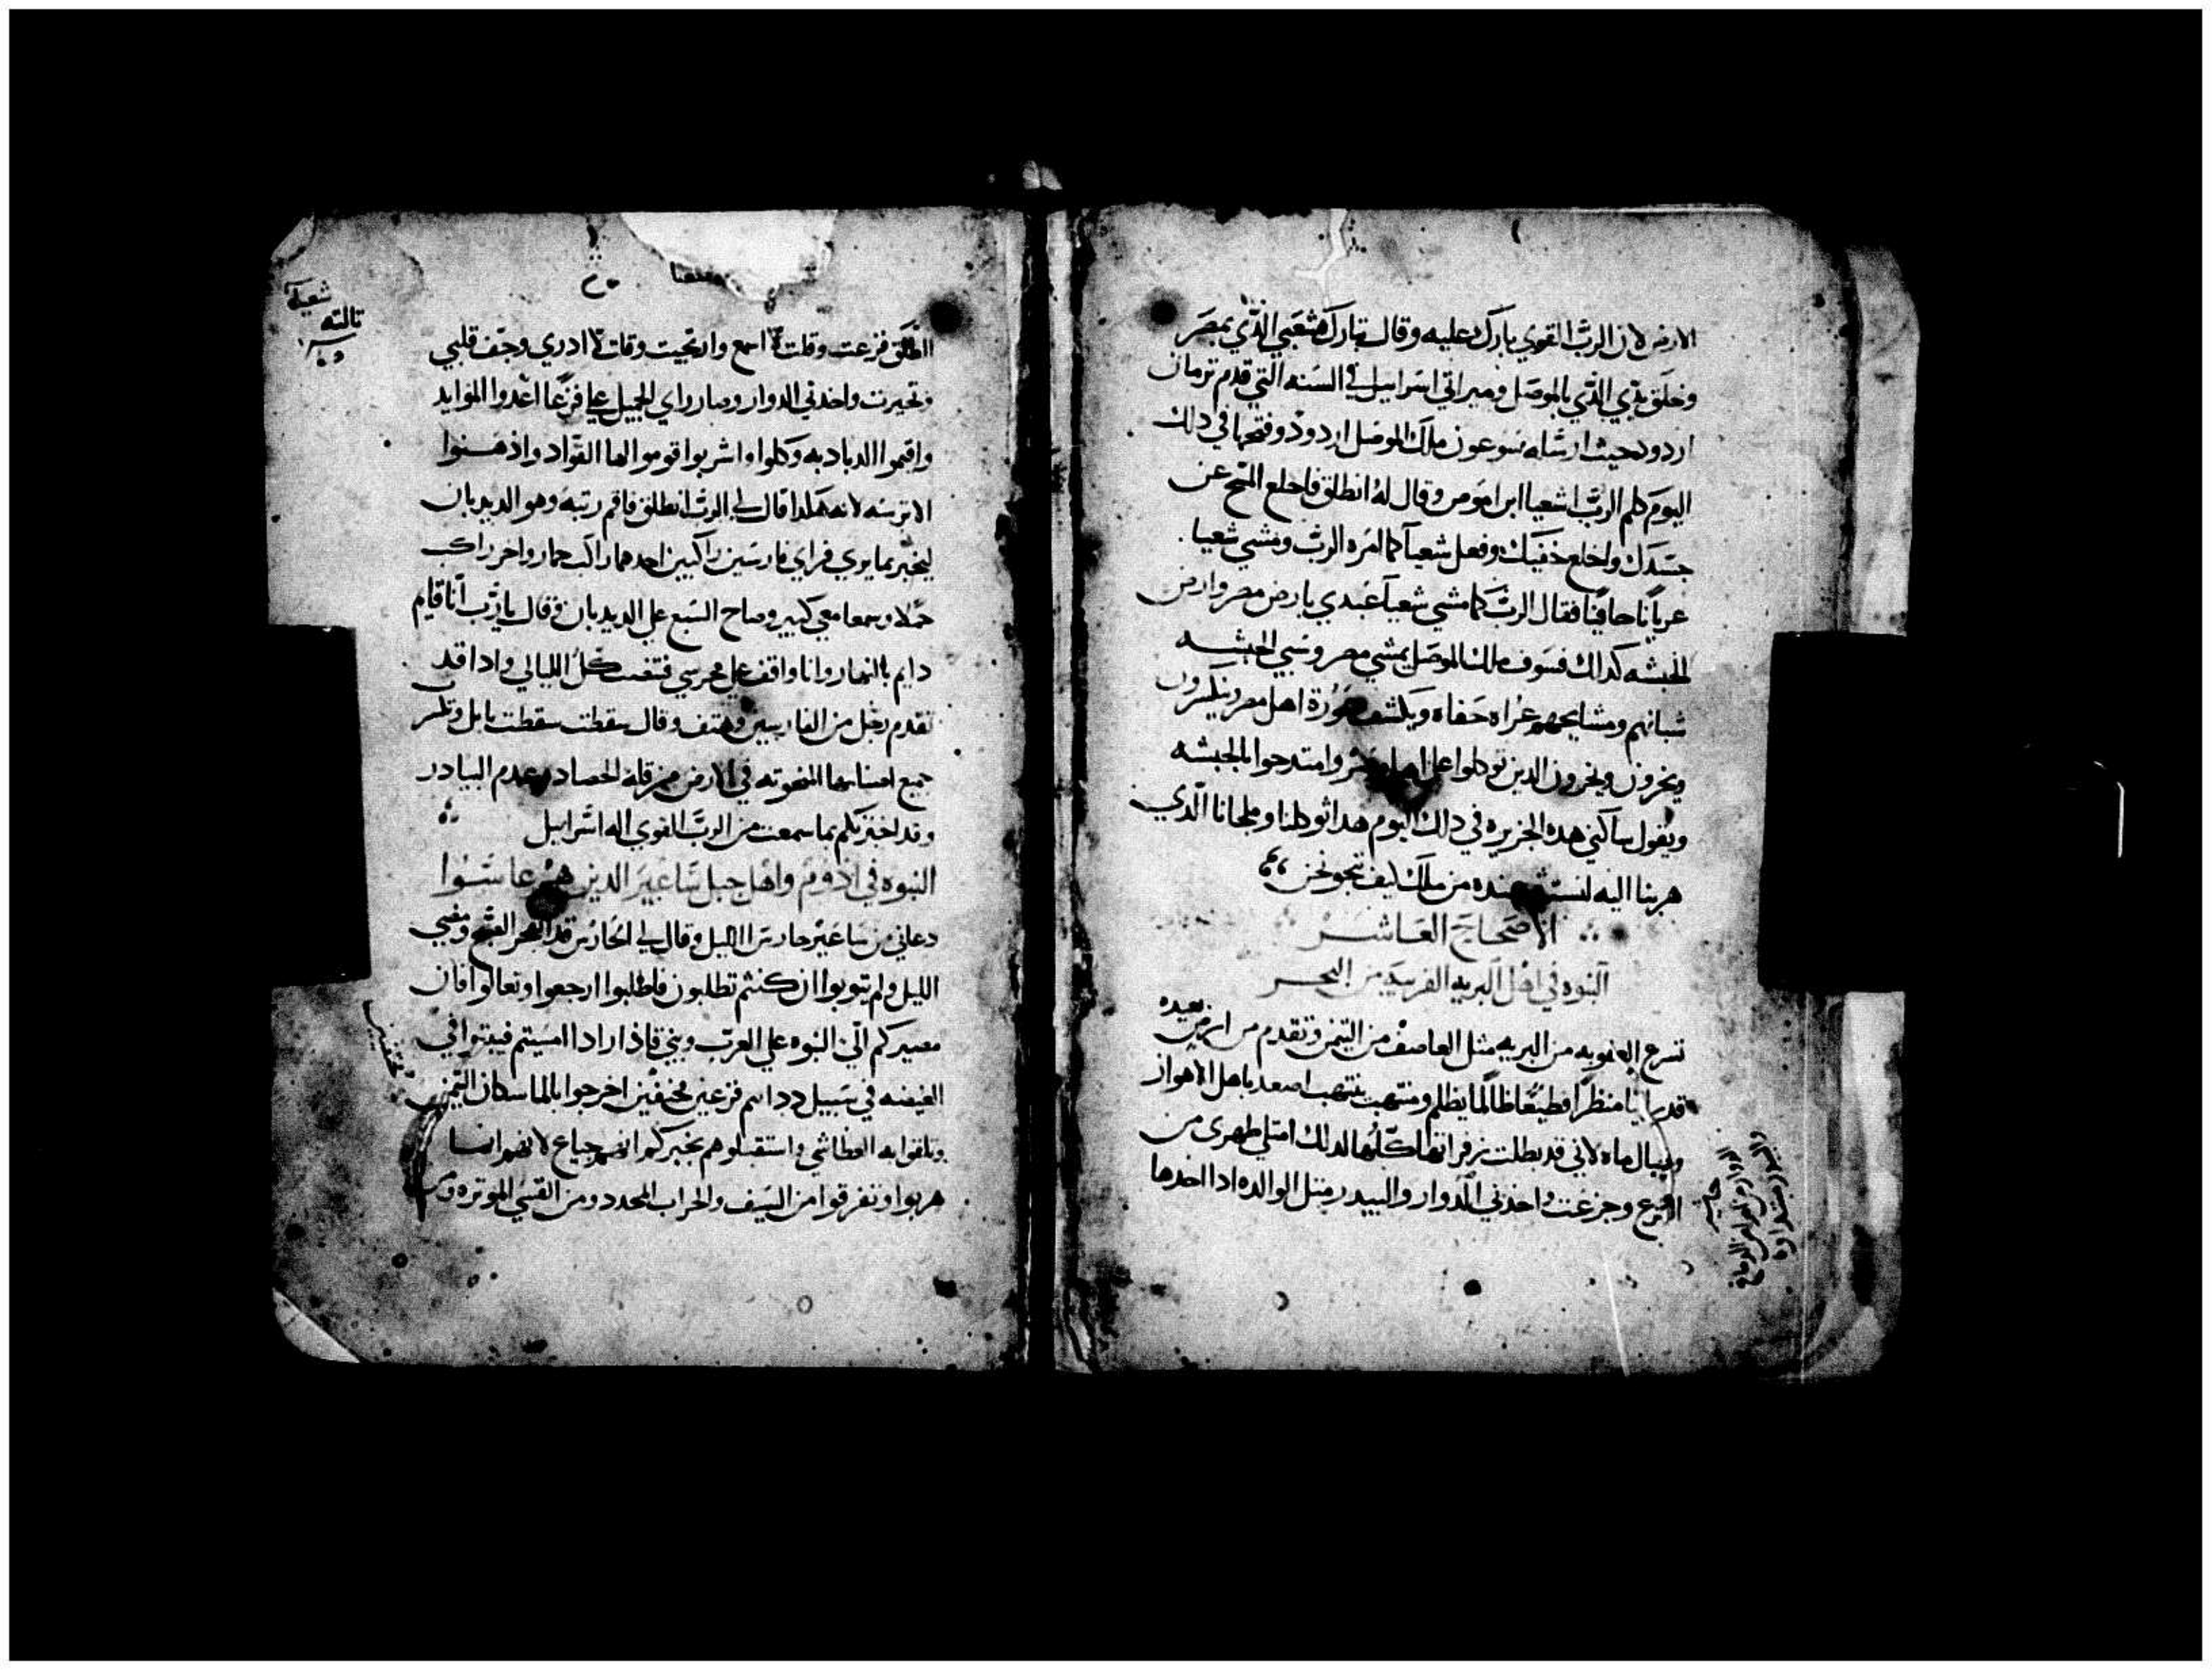 الارض لان الرب القوي بارك عليه وقال تبارك شعبي الذي بمصر
وخلق يدي الذي بالموصل وميراتي اسراييل في السنه التي قدم ترمان
اردود حيث ارساه سرعون ملك الموصل اردود وفتحها في دلك
اليوم كلم الرب اشعيا ابن اموص وقال له انطلق فاخلع المسح عن
جسدك واخلع خفيك وفعل شعيا كما امره الرب ومشي شعيا
عريانا حافيا فقال الرب كما مشي شعيا عبدي بارض مصر وارض
الحبشه كدالك فسوف ملك الموصل يمشي مصر وسبي الحبشه
شبانهم ومشايحهم عراه حفاه ويكشف عورة اهل مصر ويكسرون
ويخزون ويخزون الدين توكلوا علي وامتدحوا بالحبشه
ويقول ساكني هده الجزيره في دلك اليوم هدا توكلنا وملجانا الذي
هربنا اليه من ملك كيف ننجو نحن
الاصحاح العاشر
النبوه في اهل البريه القريبه من البحر
تسرع من البريه مثل العاصف من التيمن وتقدم من ارض بعيده
قد راينا منظرا فظيعا ظالما يظلم ومنتهب ينتهب اصعد باهل الاهواز
وجبال ماه لاني قد بطلت زفراتها كلها لدلك امتلي ظهري من
وجزعت واخدني الدوار والبيدر مثل الوالده ادا اخدها
الطلق فزعت وقلت لا اسمع وارتجيت وقلت لا ادري وجف قلبي
وتحيرت واخدني الدوار وصار راي الجميل علي فزعا اعدوا الموايد
واقيموا الدبادبه وكلوا واشربوا قوموا ايها القواد وادهنوا
الاترسه لانه هكدا قال لي الرب انطلق فاقم رتبه وهو الديدبان
ليخبر بما يري فراي فارسين راكبين احدهما راكب حمار واخر راكب
جملا وسمعا معي كبير وصاح السبع علي الديدبان وقال يا رب انا قايم
دايم بالنهار وانا واقف علي محرسي فتفت كل الليالي وادا قد
تقدم رجل من الفارسين وهتف وقال سقطت سقطت بابل وتكسر
جميع اصنامها المنحوته في الارض من قلة الحصاد وعدم البيادر
وقد اخبرتكم بما سمعت من الرب القوي اله اسراييل
النبوه في ادوم واهل جبل ساعير الدين هم عاشوا
دعاني من ساعير حارس الليل وقال لي الحارس قد الصبح ومضي
الليل ولم تتوبوا ان كنتم تطلبون فاطلبوا ارجعوا وتعالوا فان
مصيركم الي النبوه علي العرب وبني قاذار ادا امسيتم فبيتوا في
الغيضه في سبيل ددانيم فزعين محنفين اخرجوا بالما سكان التيمن
وتلقوا به العطاشي واستقبلوهم بخبزكم انهم جياع لانهم انما
هربوا وتفرقوا من السيف والحراب المحدد ومن القسي الموتره ومن